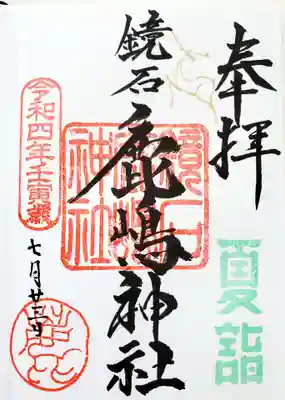 奉拝
夏詣
鏡石
鹿嶋神社
鏡石鹿嶋神社
令和四年壬寅歳
七月廿三日